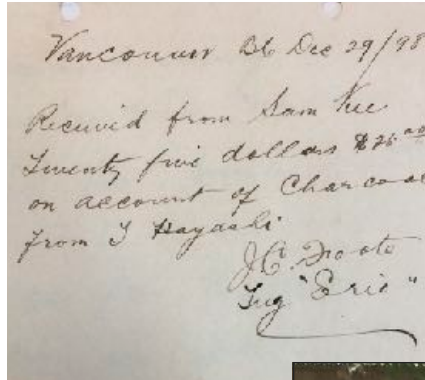 Vancouver BC Dec 29/98
Received from Sam Kee
Twenty five dollars $25.00
on account of Charcoal
from T Hayashi
J.C. Foote
Tug "Eric"